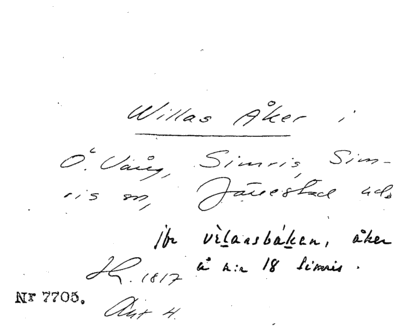 Willas Åker i
Ö. Vång, Simris, Sim-
ris sn, Järrestad hds
jfr vìlansbáken, åker
å n:r 18 Simris.
Hh. 1817
Nr 7705. Akt 4.